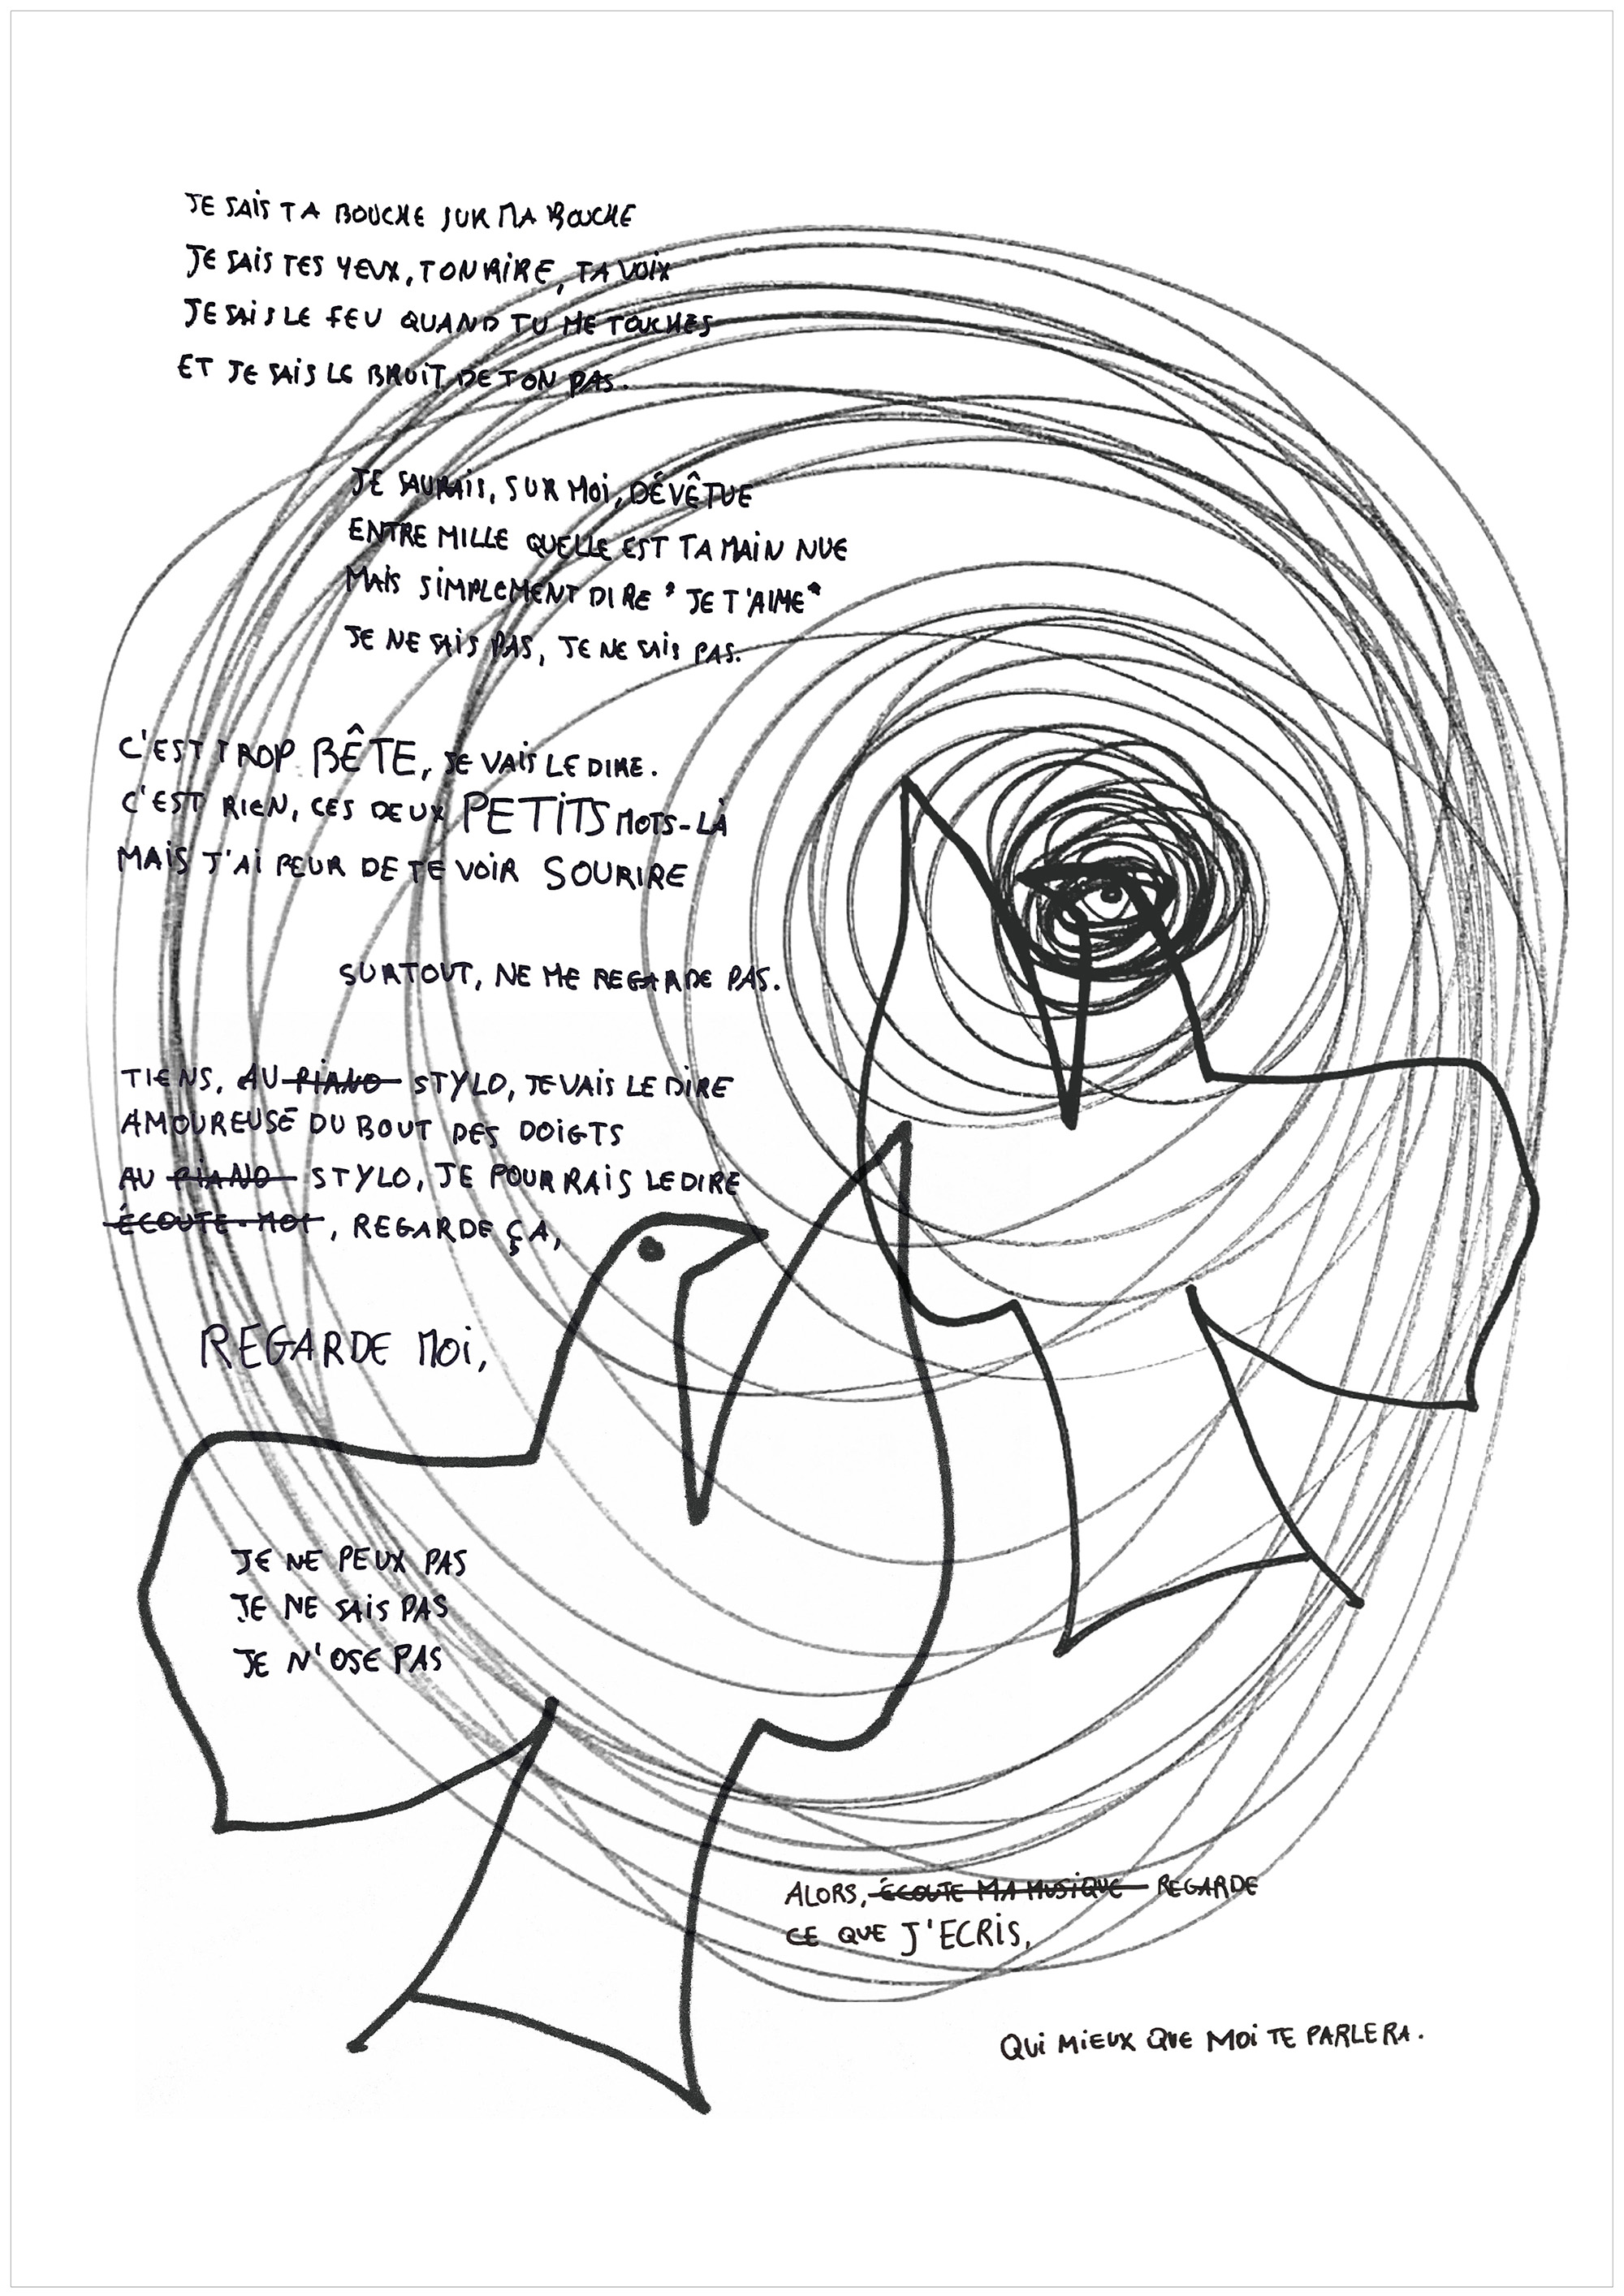 JE SAIS TA BOUCHE SUR MA BOUCHE
JE SAIS TES YEUX, TON RIRE, TA VOIX
JE SAIS LE FEU QUAND TU ME TOUCHES
ET JE SAIS LE BRUIT DE TON PAS.
JE SAURAIS, SUR MOI, DÉVÊTUE
ENTRE MILLE QUELLE EST TA MAIN NUE
MAIS SIMPLEMENT DIRE "JE T'AIME"
JE NE SAIS PAS, JE NE SAIS PAS.
C'EST TROP BÊTE, JE VAIS LE DIRE.
C'EST RIEN, CES DEUX PETITS MOTS-LÀ
MAIS J'AI PEUR DE TE VOIR SOURIRE
SURTOUT, NE ME REGARDE PAS.
TIENS, AU PIANO STYLO, JE VAIS LE DIRE
AMOUREUSE DU BOUT DES DOIGTS
AU PIANO STYLO, JE POURRAIS LE DIRE
ÉCOUTE-MOI, REGARDE ÇA,
REGARDE MOI,
JE NE PEUX PAS
JE NE SAIS PAS
JE N'OSE PAS
ALORS, ÉCOUTE MA MUSIQUE REGARDE
CE QUE J'ECRIS,
QUI MIEUX QUE MOI TE PARLERA.